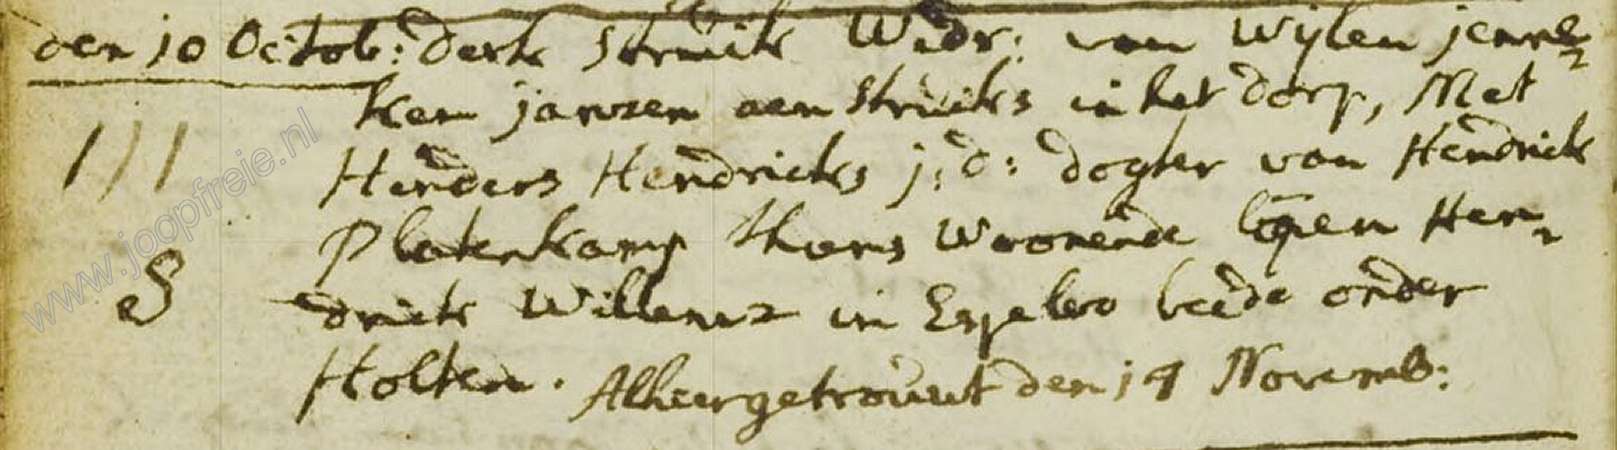 den 10 Octob: Derk Struik Wedr: van Wijlen jenne¬
ken janzen aen Struiks in het dorp, Met
Henders Hendricks j: d: dogter van Hendrick
Platenkamp thans Woonende Hen¬
drick Willems in Espelo beide onder
Holten. Alhier getrouwt den 14 Novemb:
S
www.joopfreie.nl